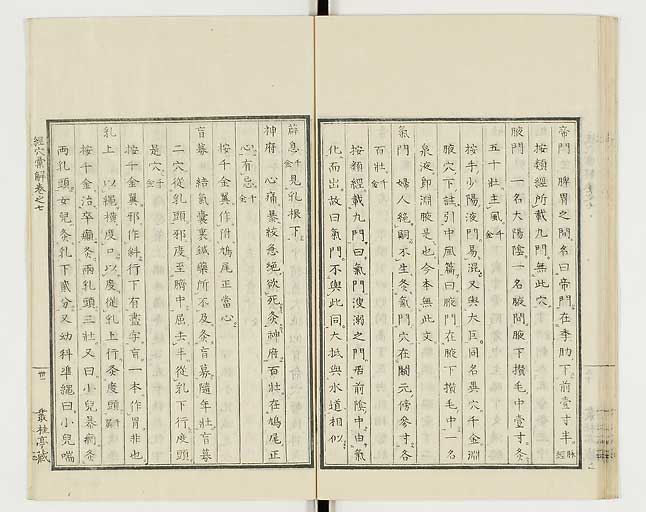 章門 脾胃之間名曰帝門在季肋下前壹寸半脉經
按類經所載九門無此穴
腋門 一名大陽陰一名腋間腋下攢毛中壹寸灸
五十壯主風千金
按手少陽液門易混又與大巨同名異穴千金淵
腋穴下註引中風篇曰腋門在腋下攢毛中一名
泉液即淵腋是也今本無此文
氣門 婦人絕嗣不生灸氣門穴在關元傍參寸各
百壯千金
按類經載九門曰氣門溲溺之門居前陰中由氣
化而出故曰氣門不與此同大抵與水道相似
薜息 見乳根下千金
神府 心痛暴絞急絕欲死灸神府百壯在鳩尾正
心有忌千金
按千金翼作附鳩尾正當心
肓募 結氣囊裹鍼藥所不及灸肓募隨年壯肓募
二穴從乳頭邪度至臍中屈去半從乳下行度頭
是穴千金
按千金翼邪作斜行下有盡字肓一本作胃非也
乳上 以繩橫度口以度從乳上行灸度頭
按千金治卒癲灸兩乳頭三壯又曰小兒暴癇灸
兩乳頭女兒灸乳下貳分又幼科準繩曰小兒喘
經穴彙解卷之七
卅二
叢桂亭藏